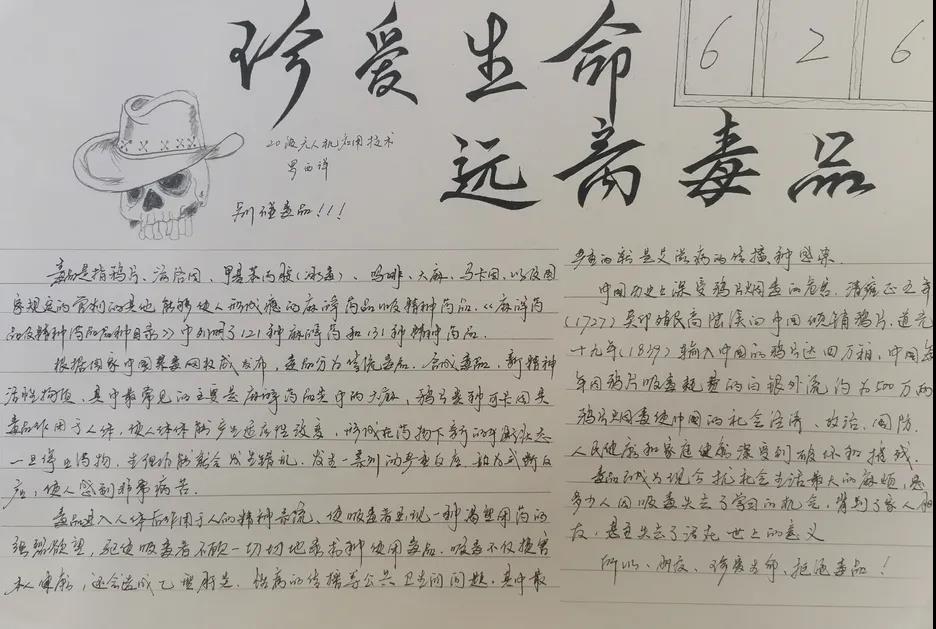 珍爱生命
远离毒品
6 2 6
20级无人机应用技术
别碰毒品!!!
毒品是指鸦片、海洛因、甲基苯丙胺(冰毒)、吗啡、大麻、可卡因,以及国
家规定的管制的其他能够使人形成瘾的麻醉药品以及精神药品.《麻醉药
品及精神药品品种目录》中列明了121种麻醉药和131种精神药品.
根据国家中国禁毒网权威发布,毒品分为传统毒品、合成毒品、新精神
活性物质,其中最常见的主要是麻醉药品类中的大麻,鸦片类和可卡因类
毒品作用于人体,使人体体能产生适应性改变,形成在药物下新的平衡状态
一旦停止药物,生理功能就会发生错乱,发生一系列的严重反应,称为戒断反
应,使人感到非常痛苦.
毒品进入人体后作用于人的精神系统,使吸毒者呈现一种渴望用药的
强烈欲望,驱使吸毒者不顾一切切地寻找和使用毒品.吸毒不仅损害
私健康,还会造成乙型肝炎、性病的传播等公共卫生问问题.其中最
严重的就是艾滋病的传播和感染.
中国历史上深受鸦片烟毒的危害,清雍正五年
(1727)英印殖民商陆续向中国倾销鸦片,道光
十九年(1839)输入中国的鸦片达四万箱,中国每
年因鸦片吸毒耗费的白银外流约为500万两
鸦片烟毒使中国的社会经济、政治、国防、
人民健康和家庭健康深受到破坏和摧残.
毒品可成为现今扰社会生活最大的麻烦,
多少人因吸毒失去了学习的机会,背判了家人朋
友,甚至失去了活在世上的意义
所以,朋友,珍爱生命,拒绝毒品!